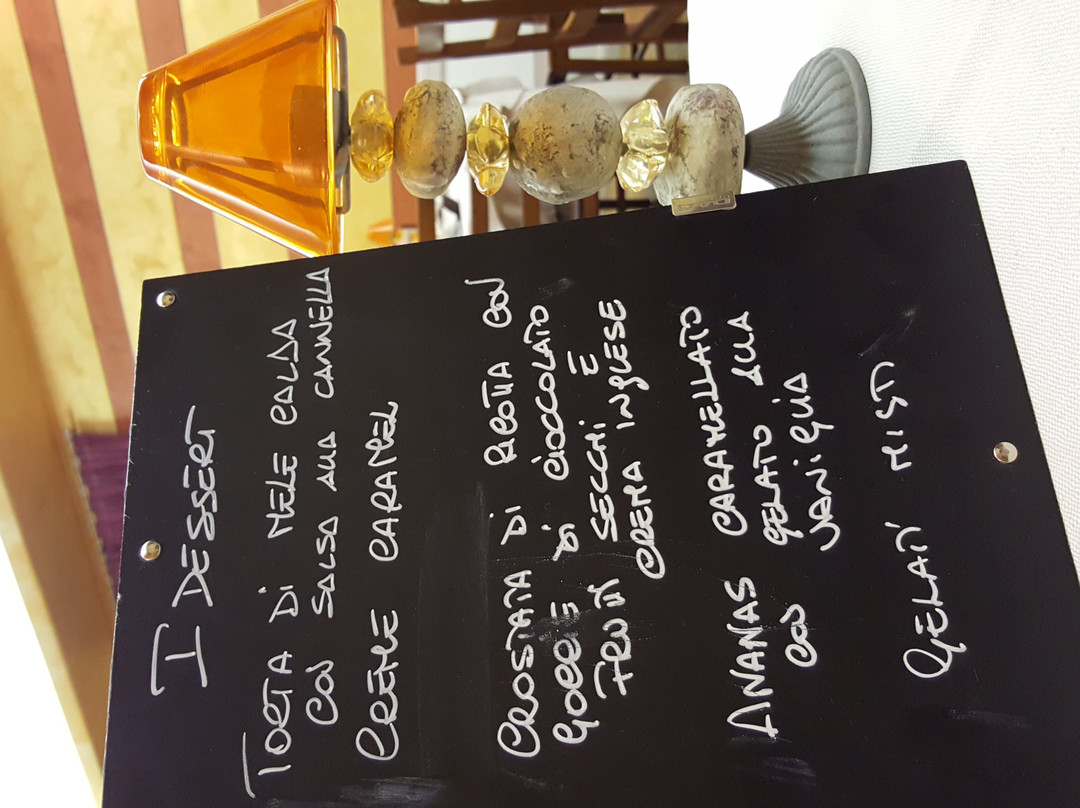 I DESSERT
TORTA DI MELE CALDA
CON SALSA ALLA CANNELLA
CREME CARAMEL
CROSTATA DI RICOTTA CON
GOCCE DI CIOCCOLATO
FRUTTI SECCHI E
CREMA INGLESE
ANANAS CARAMELLATO
CON GELATO ALLA
VANIGLIA
GELATI MISTI